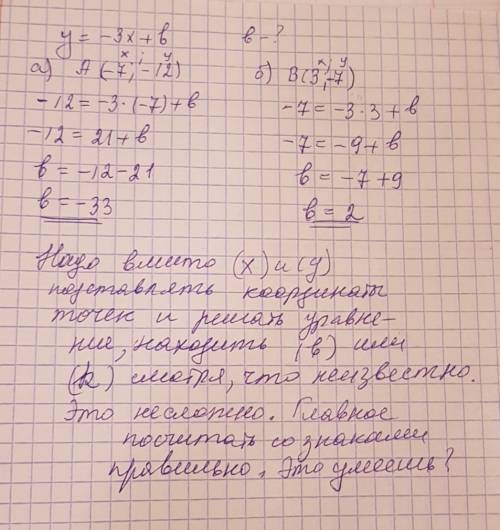 y = -3x + b        b - ?
x ; y
а) A (-7; -12)
-12 = -3·(-7) + b
-12 = 21 + b
b = -12 - 21
b = -33
x ; y
б) B(3; -7)
-7 = -3·3 + b
-7 = -9 + b
b = -7 + 9
b = 2
Надо вместо (x) и (y)
подставлять координаты
точек и решать уравне-
ние, находить (b) или
(k) смотря, что неизвестно.
Это несложно. Главное
посчитать со знаками
правильно. Это умеешь?